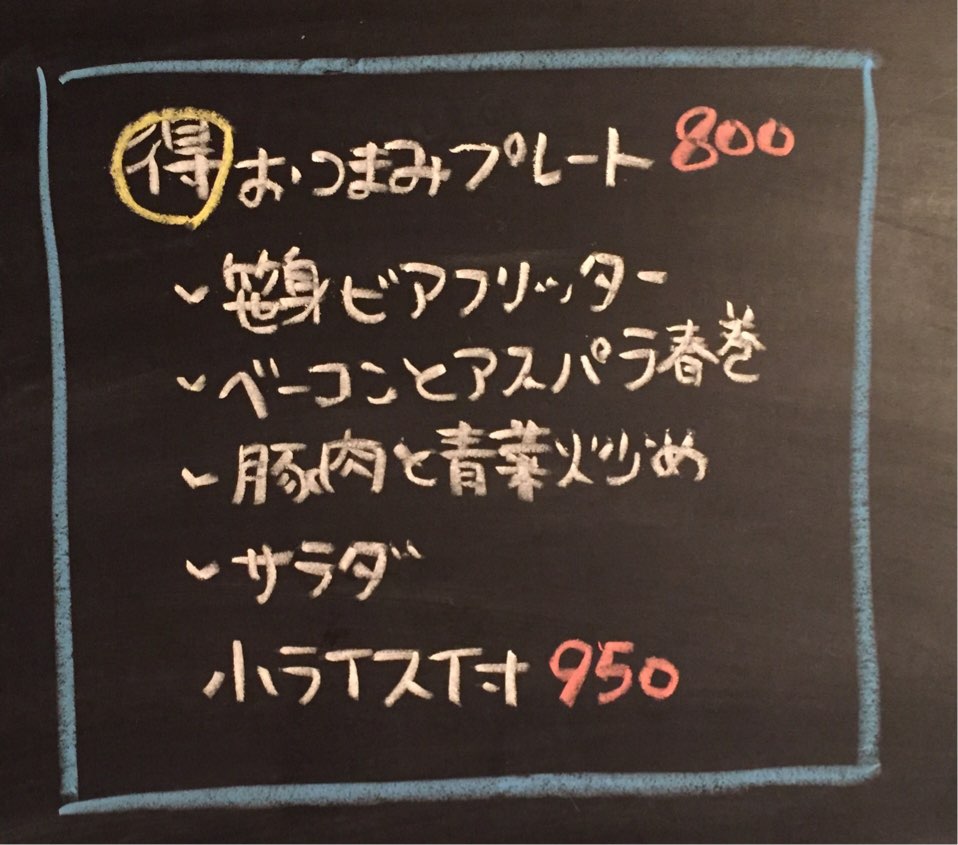 得 おつまみプレート 800
笹身ビアフリッター
ベーコンとアスパラ春巻
豚肉と青菜炒め
サラダ
小ライス付 950